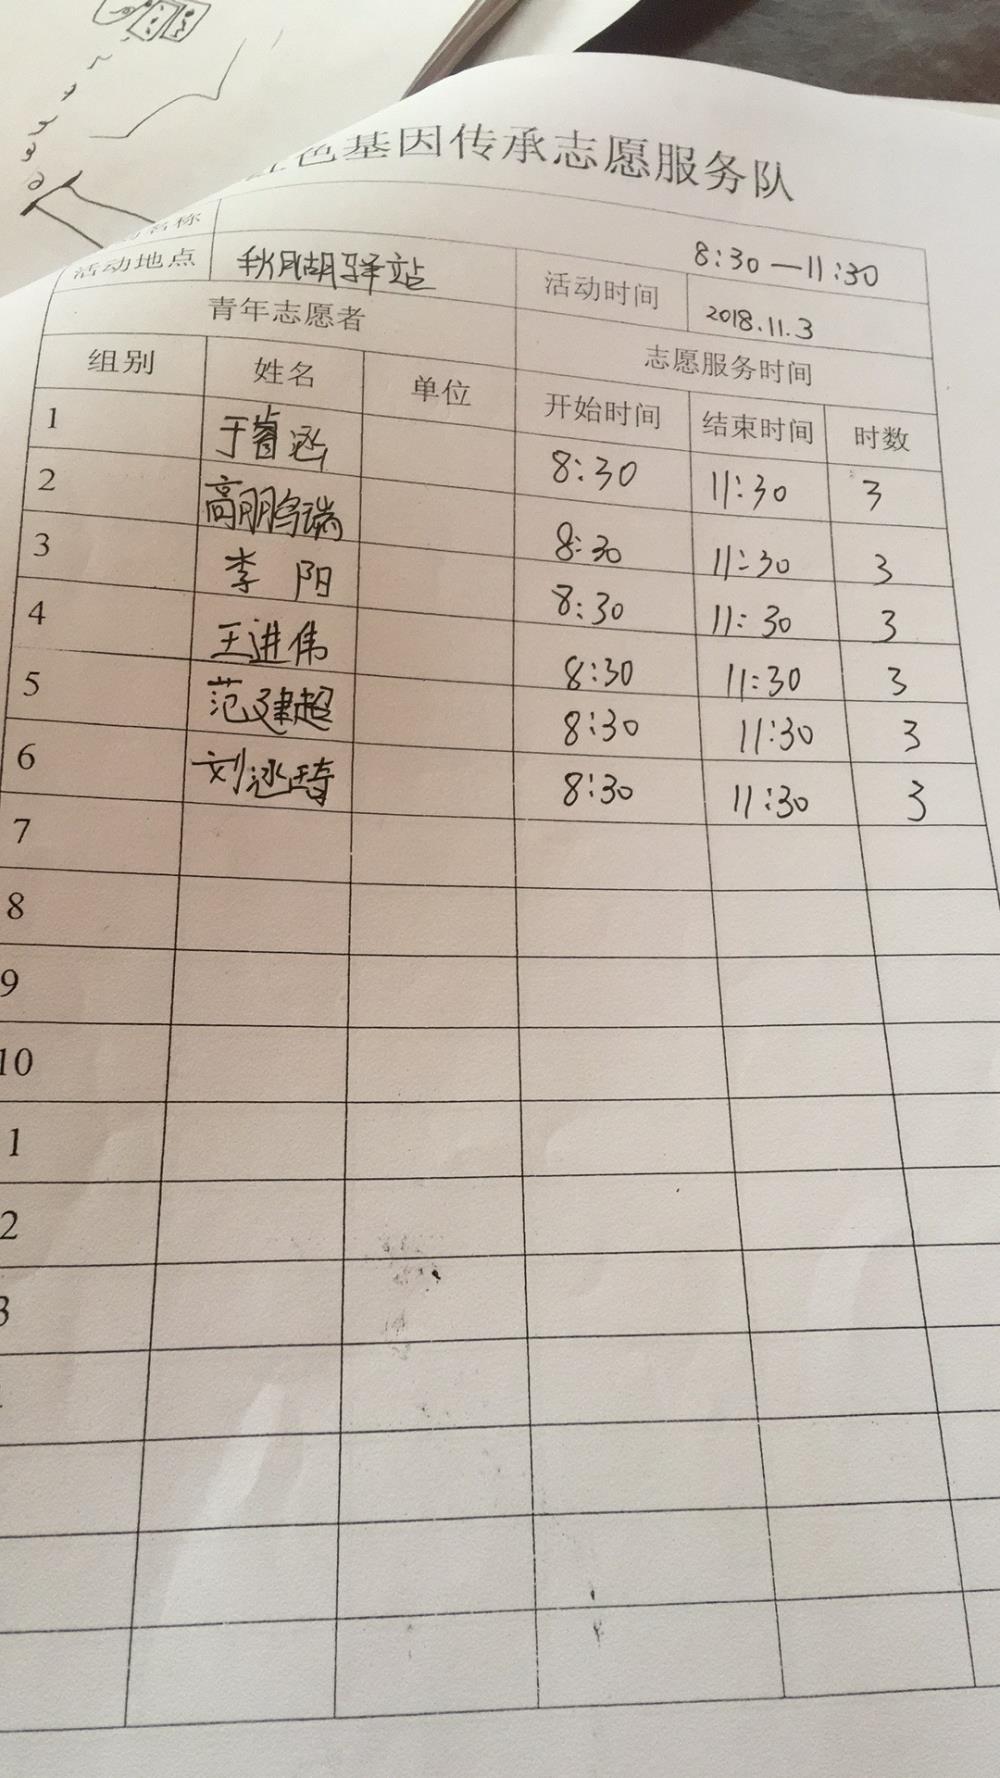 色基因传承志愿服务队
名称
8:30—11:30
活动地点 秋月湖驿站 活动时间 2018.11.3
青年志愿者 志愿服务时间
组别 姓名 单位 开始时间 结束时间 时数
1 于睿涵 8:30 11:30 3
2 高鹏瑞 8:30 11:30 3
3 李阳 8:30 11:30 3
4 王进伟 8:30 11:30 3
5 范建超 8:30 11:30 3
6 刘 琦 8:30 11:30 3
7
8
9
10
1
2
3